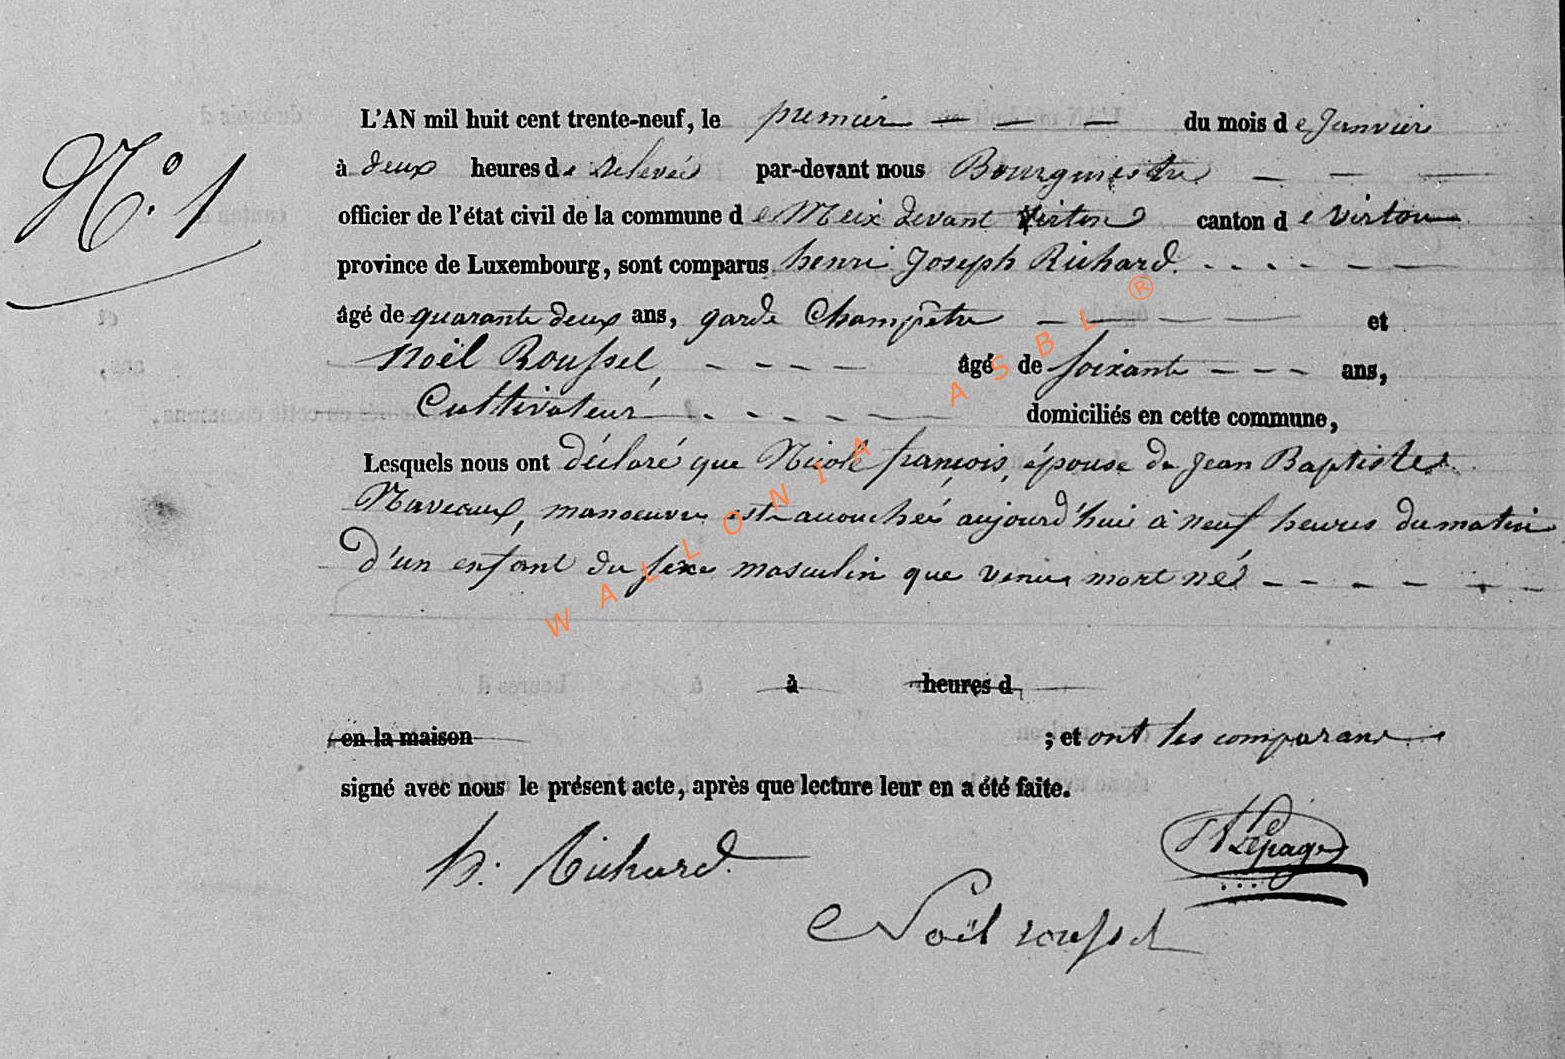 N.º 1
L'AN mil huit cent trente-neuf, le premier — — — du mois de Janvier
à deux heures de relevée par-devant nous Bourgmestre — — —
officier de l'état civil de la commune de Meix devant Virton canton de Virton
province de Luxembourg, sont comparus henri Joseph Richard - - - - — —
âgé de quarante deux ans, garde Champêtre — — — — et
Noël Roussel, - - - - âgé de soixante - - - ans,
Cultivateur - - - - — — domiciliés en cette commune,
Lesquels nous ont déclaré que Nicole françois, épouse de Jean Baptiste
Naveaux, manoeuvre est accouchée aujourd'hui à neuf heures du matin
d'un enfant du sexe masculin que venu mort né - - - - - -
à heures d
en la maison ; et ont les comparans
signé avec nous le présent acte, après que lecture leur en a été faite.
h. Richard
Lepage
Noël roussel
WALLONIA ASBL ®